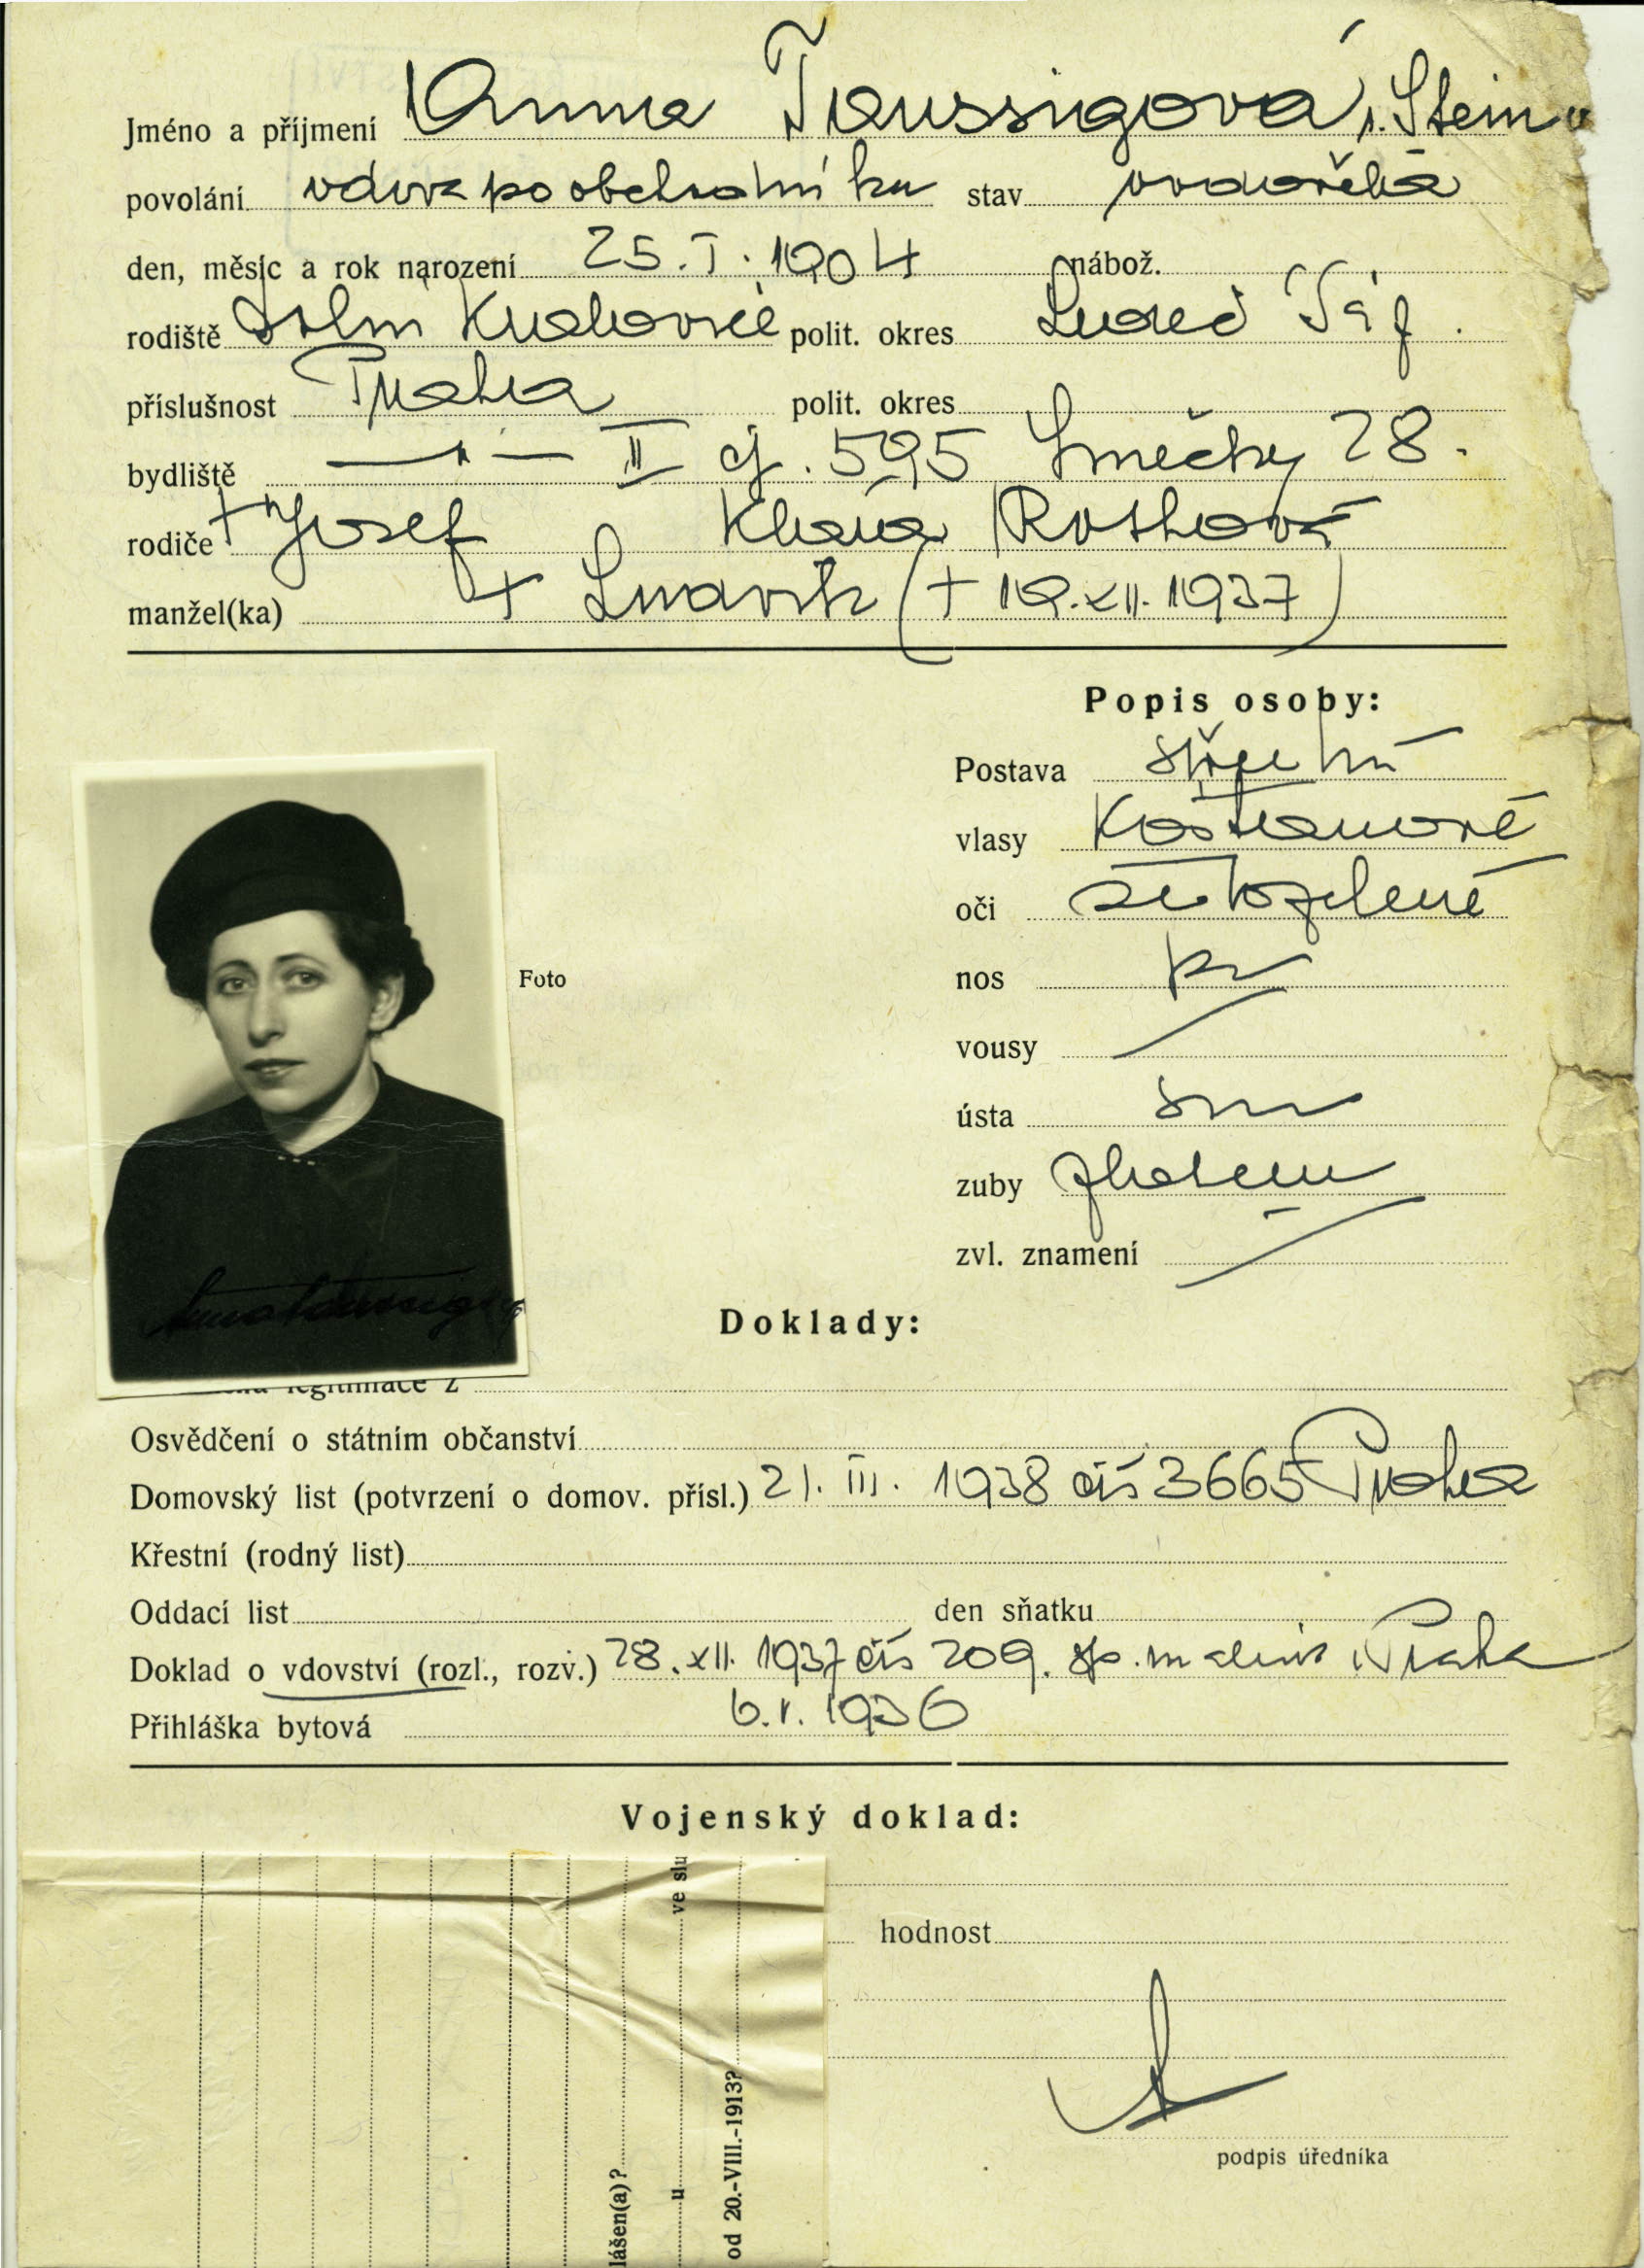 Jméno a příjmení Anna Taussigová, r. Stein
povolání vdova po obchodníku stav ovdovělá
den, měsíc a rok narození 25. I. 1904 nábož.
rodiště Dolní polit. okres
příslušnost Praha polit. okres
bydliště —"— II čj. 595 Smečky 28.
rodiče + Josef Klára Rothová
manžel(ka) + (+ 19. XII. 1937)
Popis osoby:
Postava střední
vlasy Kaštanové
oči šedozelené
nos
vousy
ústa
zuby
zvl. znamení
Foto
Doklady:
legitimace z
Osvědčení o státním občanství
Domovský list (potvrzení o domov. přísl.) 21. III. 1938 čís 3665 Praha
Křestní (rodný list)
Oddací list den sňatku
Doklad o vdovství (rozl., rozv.) 28. XII. 1937 čís 209. Praha
Přihláška bytová 6. I. 1936
Vojenský doklad:
hodnost
podpis úředníka
lášen(a)?
u ve slu
od 20.-VIII.-1913?